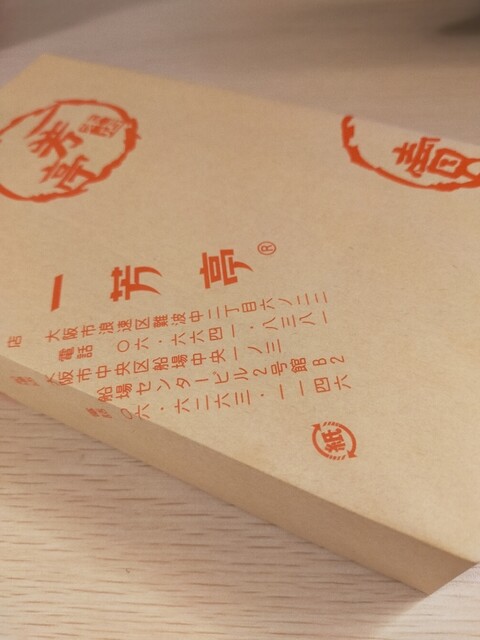 一芳亭
一芳亭®
店
大阪市浪速区難波中二丁目六ノ二二
電話 〇六・六六四一・八三八一
大阪市中央区船場中央一ノ三
船場センタービル2号館B2
〇六・六二六三・一一四六
紙